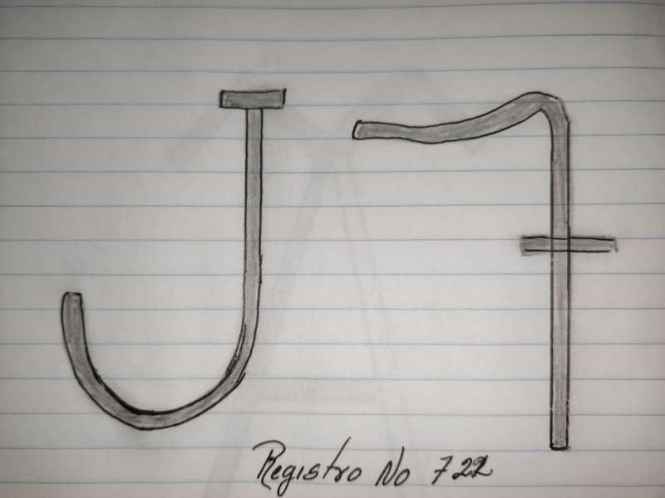 J 7
Registro No 722